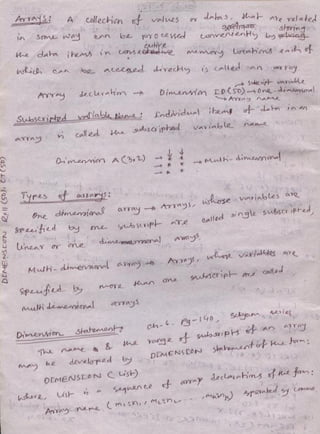 Arrays: A collection of values or datas, that are related
in some way can be processed conveniently by storing
the data items in memory locations each of
which can be accessed directly is called an array
Array declaration → Dimension ID(50) → One-dimensional
→ Subscript variable
→ Array name
Subscripted variable Name: Individual items of data in an
array is called the subscripted variable name
Dimension A(3,2) → Multi-dimensional
Types of arrays:
One dimensional array → Arrays, whose variables are
specified by one subscript are called single subscripted,
linear or one dimensional arrays
Multi-dimensional array → Arrays, whose variables are
specified by more than one subscript are called
multi dimensional arrays
Dimension statement Ch-6. Pg-140, series
The name & the range of subscripts of an array
may be developed by DIMENSION statement of the form:
DIMENSION (List)
where, List is a sequence of array declarations of the form:
Array name ( ) separated by comma